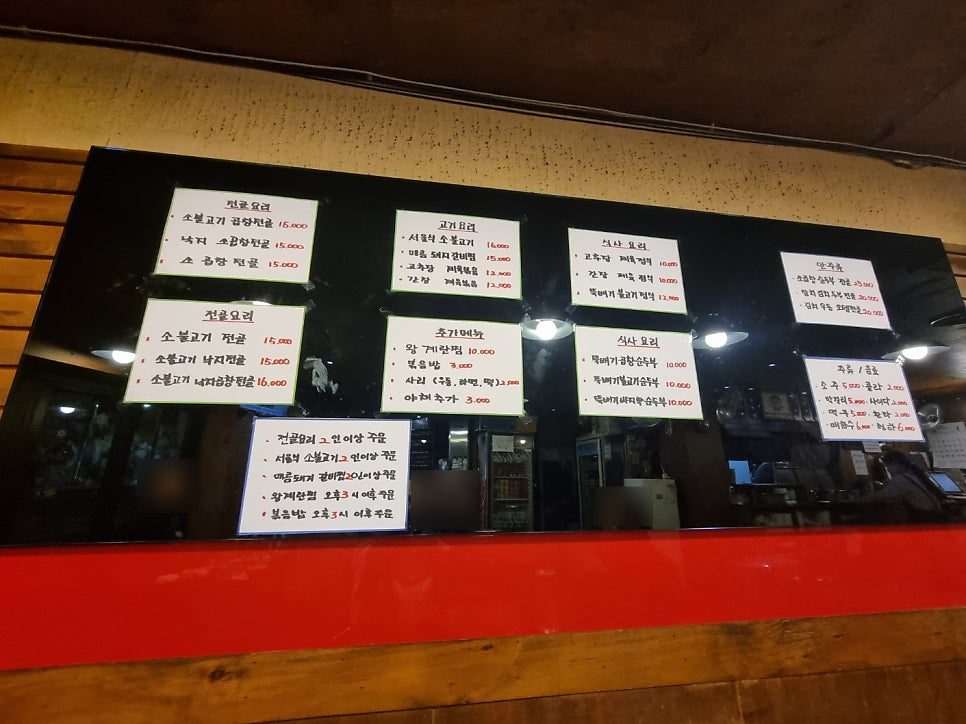 전골요리
소불고기 곱창전골 16.000
낙지 소곱창전골 15.000
소 곱창 전골 15.000
고기요리
서울식 소불고기 16.000
매콤 돼지갈비찜 15.000
고추장 제육볶음 12.000
간장 제육볶음 12.000
식사 요리
고추장 제육정식 10.000
간장 제육 정식 10.000
뚝배기 불고기정식 12.000
안주류
소곱창순두부 전골 25.000
참치김치 두부 전골 20.000
김치 우동 오뎅전골 20.000
전골요리
소불고기 전골 15.000
소불고기 낙지전골 15.000
소불고기 낙지곱창전골 16.000
추가메뉴
왕 계란찜 10.000
볶음밥 3.000
사리 (우동, 라면, 떡) 2.000
야채추가 3.000
식사 요리
뚝배기 곱창순두부 10.000
뚝배기불고기순두부 10.000
뚝배기바지락순두부 10.000
주류 / 음료
소주 5.000 콜라 2.000
막걸리 5.000 사이다 2.000
맥주 5.000 환타 2.000
매화수 6.000 청하 6.000
전골요리 2인이상 주문
서울식 소불고기 2인이상 주문
매콤돼지 갈비찜 2인이상 주문
왕계란찜 오후3시이후 주문
볶음밥 오후3시 이후주문